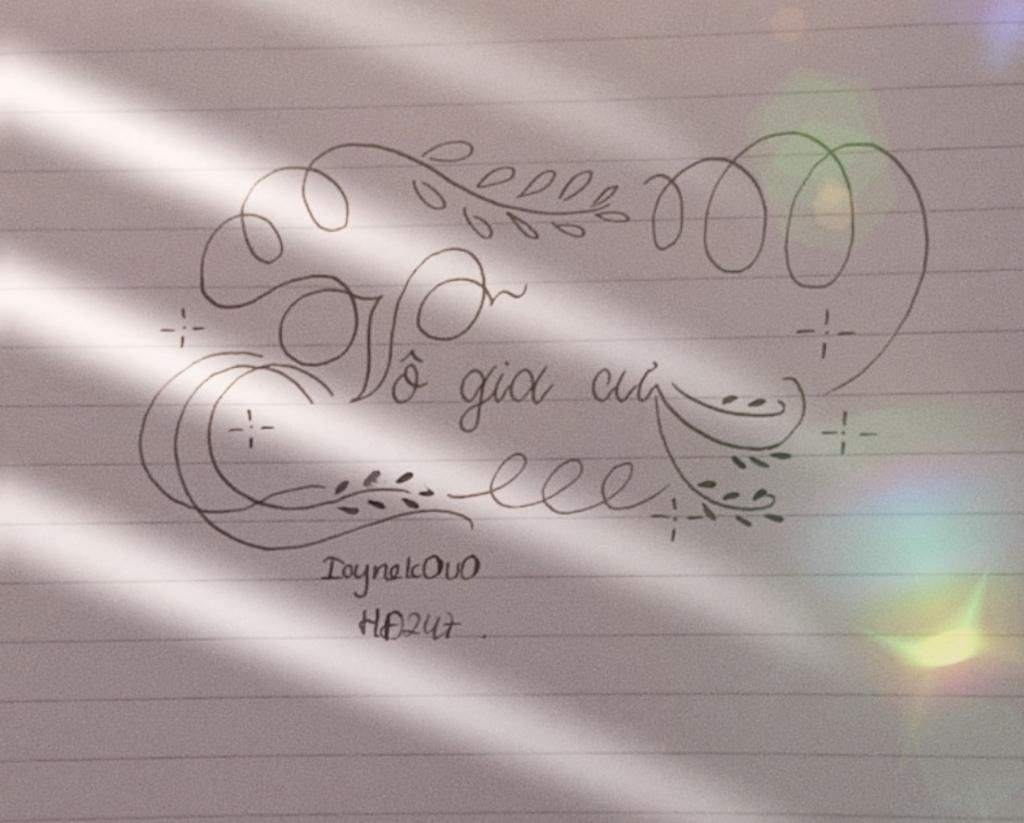 Vô gia cư
IoynekOuO
HĐ247